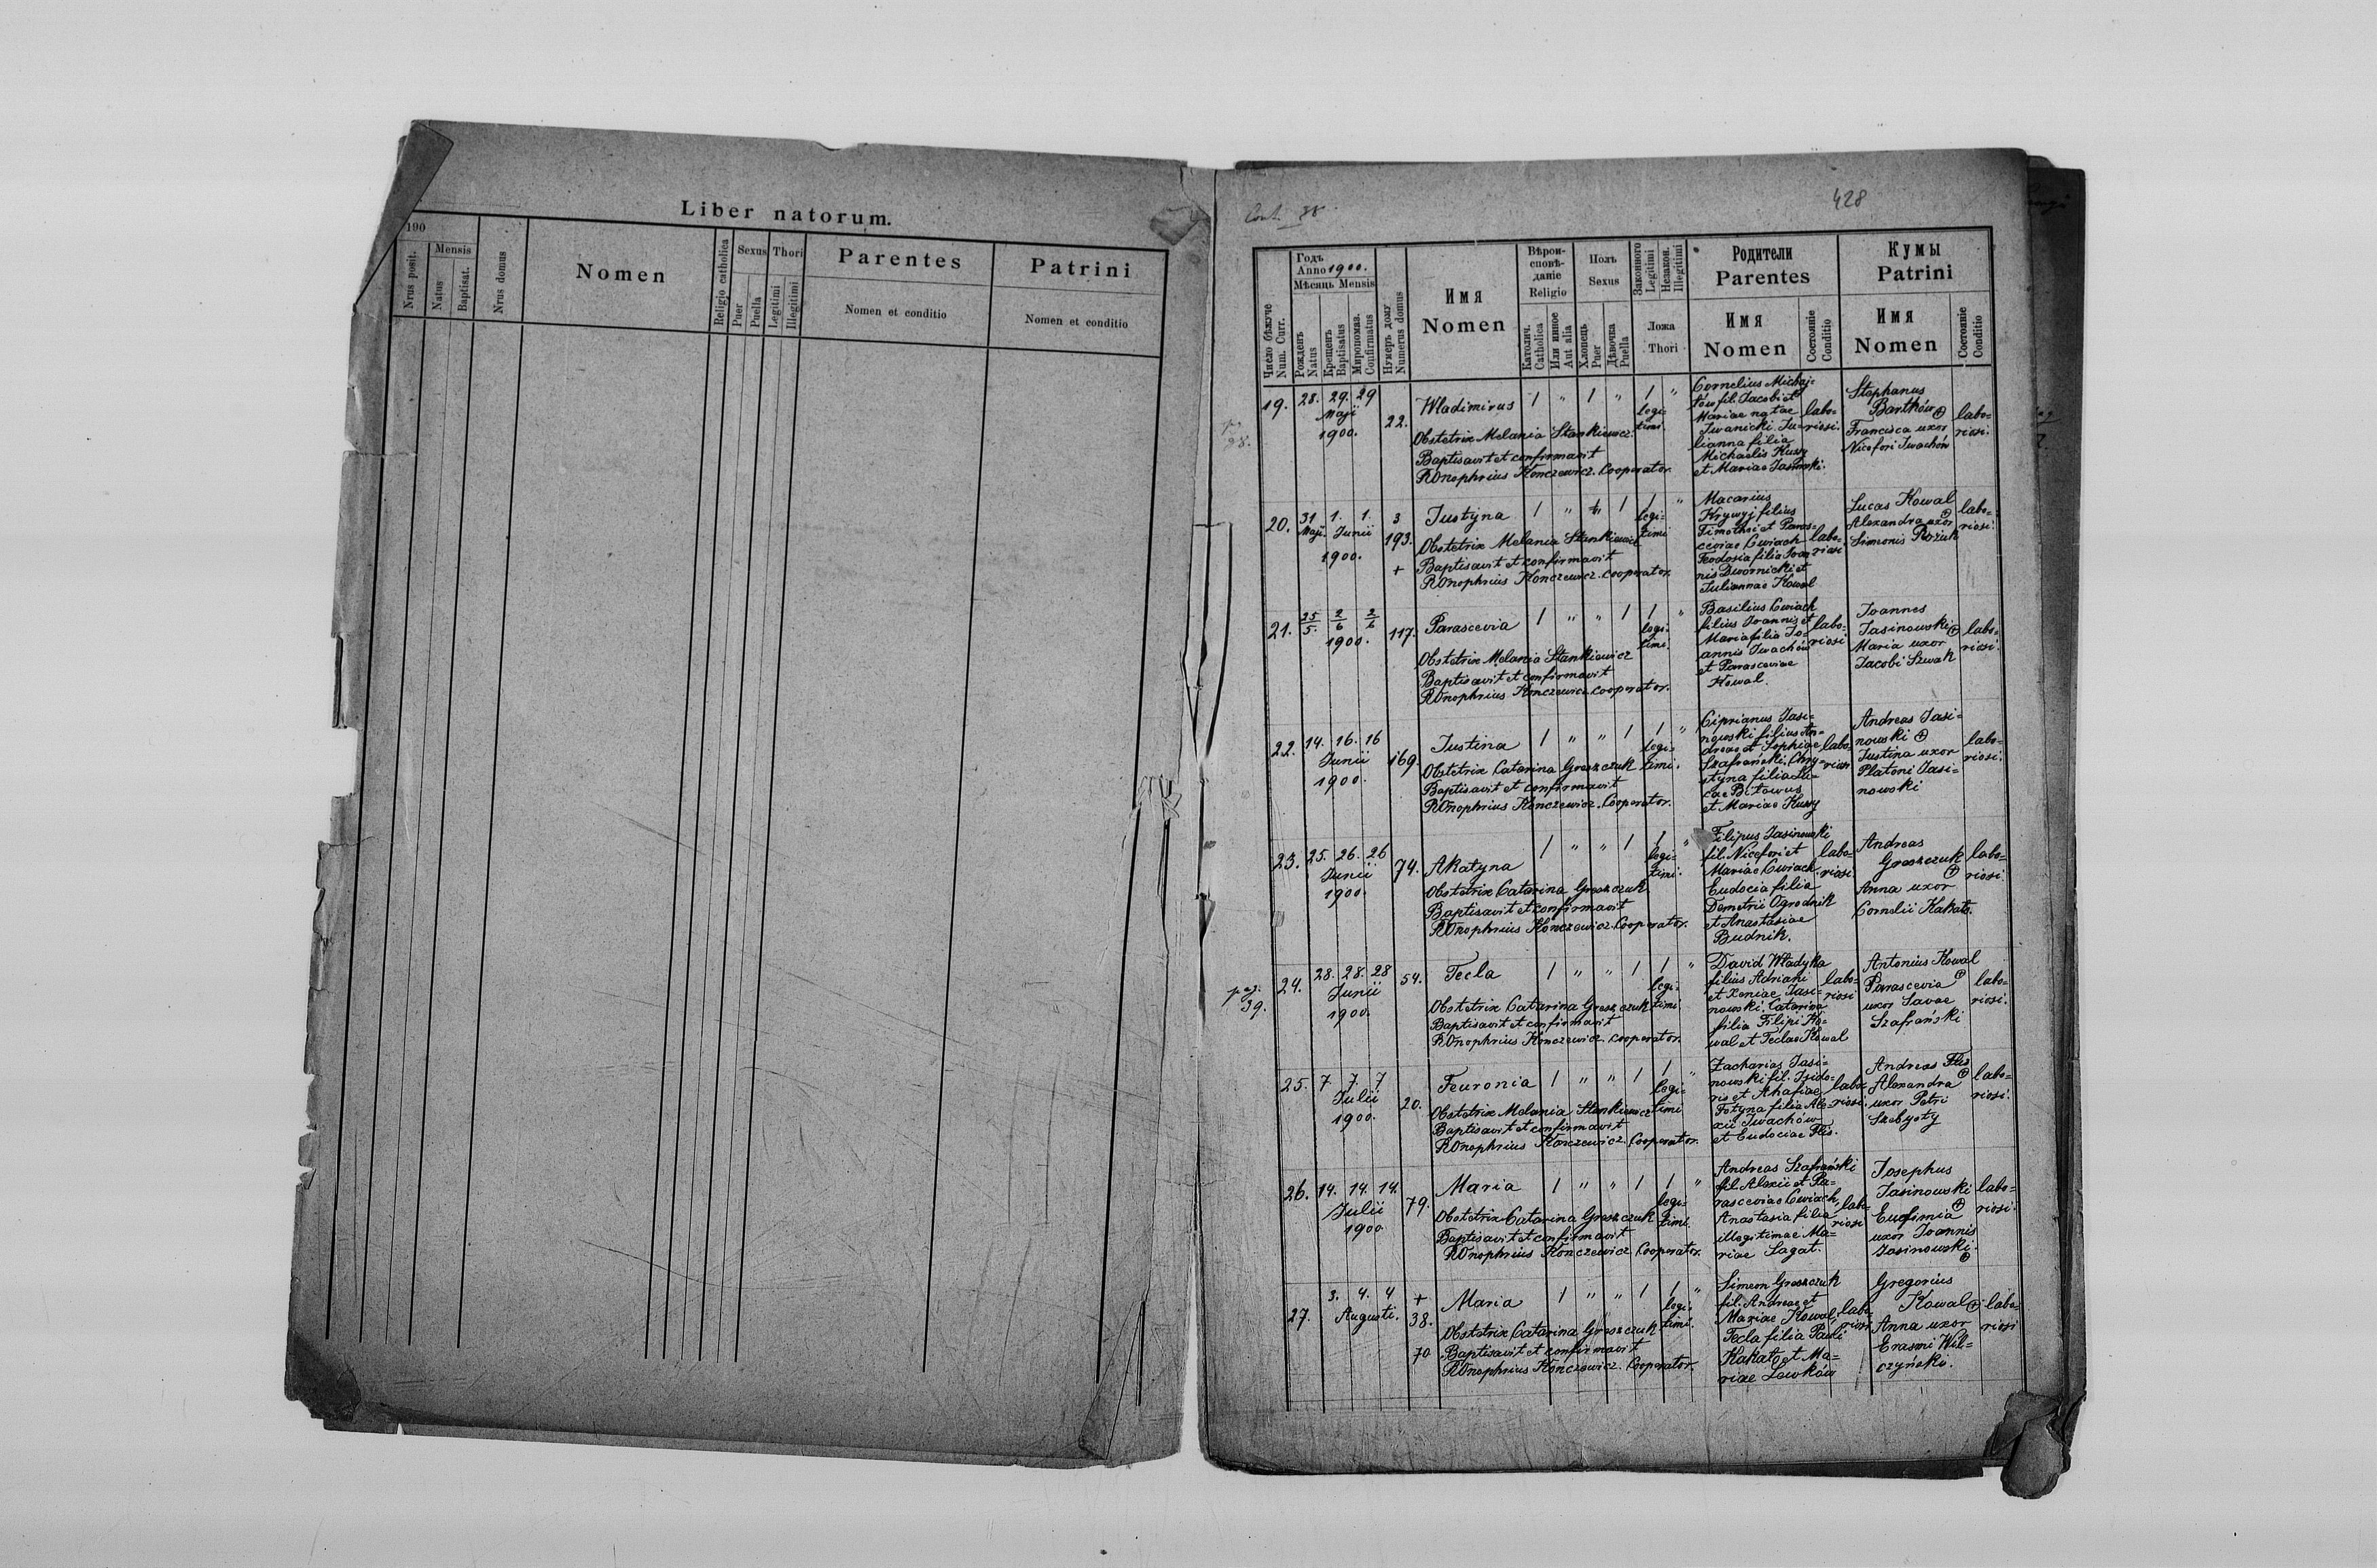 Liber natorum.
190
Nrus posit.
Mensis
Natus
Baptisat.
Nrus domus
Nomen
Religio catholica
Sexus
Puer
Puella
Thori
Legitimi
Illegitimi
Parentes
Nomen et conditio
Patrini
Nomen et conditio
428
Число бѣжуче
Num. Curr.
Годъ
Anno 1900.
Мѣсяць Mensis
Рожденъ
Natus
Крещенъ
Baptisatus
Миропомаз.
Confirmatus
Нумеръ дому
Numerus domus
Имя
Nomen
Вѣрои-
сповѣ-
даніе
Religio
Католич.
Catholica
Или инное
Aut alia
Полъ
Sexus
Хлопець
Puer
Дѣвочка
Puella
Законного
Legitimi
Незакон.
Illegitimi
Ложа
Thori
Родители
Parentes
Имя
Nomen
Состояніе
Conditio
Кумы
Patrini
Имя
Nomen
Состояніе
Conditio
19. 28. 29. 29
Maji
1900.
22.
Wladimirus
1 " 1 " 1 "
legi-
timi.
Obstetrix Melania Stankiewicz.
Baptisavit et confirmavit
ROnophrius Konczewicz. Cooperator.
Cornelius Michaj-
łów fil. Jacobi et
Mariae natae
Iwanicki. Ju-
lianna filia
Michaelis Kuzy
et Mariae Jasinowski.
labo-
riosi.
Stephanus
Barthów
Francisca uxor
Nicefori Iwachów
labo-
riosi.
20. 31 1. 1.
Maji. Junii
1900.
3
193.
+
Justyna
1 " 1 1 "
legi-
timi
Obstetrix Melania Stankiewicz
Baptisavit et confirmavit
ROnophrius Konczewicz. cooperator.
Macarius
Krywyj filius
Timothei et Paras-
ceviae Cwiach
Teodosia filia Joan
nis Dwornicki et
Juliannae Kowal
labo-
riosi
Lucas Kowal
Alexandra uxor
Simonis Rożuk
labo-
riosi.
21. 25/5. 2/6 2/6
1900.
117.
Parascevia
1 " " 1 1 "
legi-
timi.
Obstetrix Melania Stankiewicz
Baptisavit et confirmavit
ROnophrius Konczewicz. cooperator.
Basilius Cwiach
filius Joannis et
Maria filia Jo-
annis Iwachów
et Parasceviae
Kowal.
labo-
riosi
Joannes
Jasinowski
Maria uxor
Jacobi Szwak
labo-
riosi.
22. 14. 16. 16
Junii
1900.
169.
Justina
1 " " 1 1 "
legi-
timi.
Obstetrix Catarina Greszczuk
Baptisavit et confirmavit
ROnophrius Konczewicz. Cooperator.
Ciprianus Jasi-
nowski filius An-
dreae et Sophiae
Szafrański. Chry-
styna filia Lu-
cae Bitowus
et Mariae Kuzy
labo-
riosi
Andreas Jasi-
nowski
Justina uxor
Platoni Jasi-
nowski
labo-
riosi.
23. 25. 26. 26
Junii
1900.
74.
Akatyna
1 " " 1 1 "
legi-
timi.
Obstetrix Catarina Greszczuk
Baptisavit et confirmavit
ROnophrius Konczewicz. Cooperator.
Filipus Jasinowski
fil. Nicefori et
Mariae Cwiach.
Eudocia filia
Demetrii Ogrodnik
et Anastasiae
Budnik.
labo-
riosi
Andreas
Greszczuk
Anna uxor
Cornelii Kakato.
labo-
riosi.
pag.
39.
24. 28. 28. 28
Junii
1900.
54.
Tecla
1 " " 1 1 "
legi-
timi.
Obstetrix Catarina Greszczuk
Baptisavit et confirmavit
ROnophrius Konczewicz. cooperator.
David Władyka
filius Adriani
et Xeniae Jasi-
nowski. Catarina
filia Filipi Ko-
wal et Teclae Kowal
labo-
riosi
Antonius Kowal
Parascevia
uxor Savae
Szafrański
labo-
riosi.
25. 7 7. 7
Julii
1900.
20.
Feuronia
1 " " 1 1 "
legi-
timi
Obstetrix Melania Stankiewicz
Baptisavit et confirmavit
ROnophrius Konczewicz. Cooperator.
Zacharias Jasi-
nowski fil. Isido-
ris et Ahafiae
Fotyna filia Ale-
xii Iwachów
et Eudociae Flis.
labo-
riosi.
Andreas Flis
Alexandra
uxor Petri
Szebyoty
labo-
riosi.
26. 14. 14. 14.
Julii
1900
79.
Maria
1 " " 1 1 "
legi-
timi.
Obstetrix Catarina Greszczuk
Baptisavit et confirmavit
ROnophrius Konczewicz Cooperator.
Andreas Szafrański
fil. Alexii et Pa-
rasceviae Cwiach,
Anastasia filia
illegitimae Ma-
riae Sagat.
labo-
riosi
Josephus
Jasinowski
Eufimia
uxor Joannis
Jasinowski.
labo-
riosi.
27. 3. 4. 4
Augusti.
+
38.
70
Maria
1 " " 1 1 "
legi-
timi.
Obstetrix Catarina Greszczuk
Baptisavit et confirmavit
ROnophrius Konczewicz. Cooperator.
Simeon Greszczuk
fil. Andreae et
Mariae Kowal,
Tecla filia Pauli
Kakato et Ma-
riae Lewków
labo-
riosi
Gregorius
Kowal
Anna uxor
Erasmi Wil-
czyński.
labo-
riosi